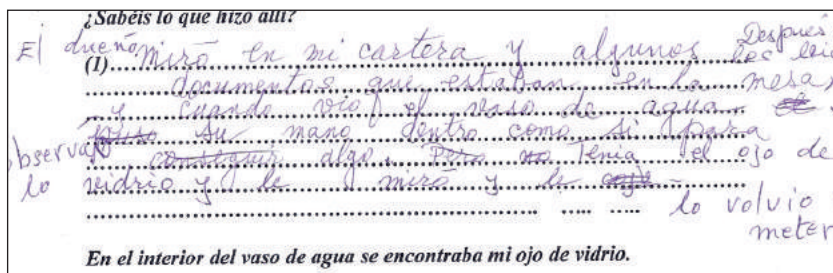 ¿Sabéis lo que hizo allí?
El dueño miró en mi cartera y algunos Después
(1) documentos que estaban en la mesa les
y cuando vio el vaso de agua
puso su mano dentro como si para
observar conseguir algo. Pero no Tenía el ojo de
lo vidrio y le miró y le
lo volvió
meter
En el interior del vaso de agua se encontraba mi ojo de vidrio.